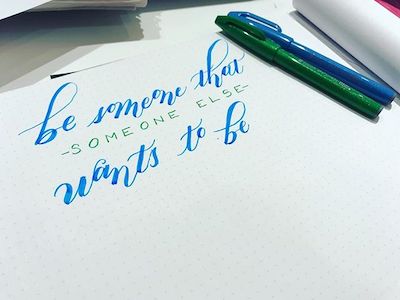 be someone that
-SOMEONE ELSE-
wants to be